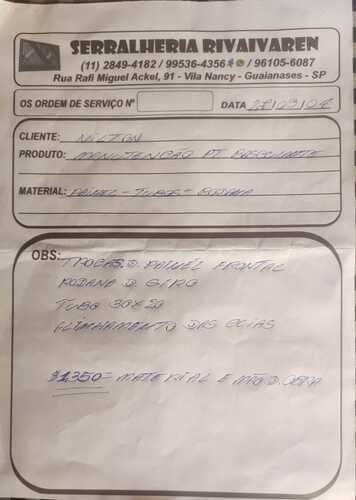 SERRALHERIA RIVAIVAREN
(11) 2849-4182 / 99536-4356 / 96105-6087
Rua Rafi Miguel Ackel, 91 - Vila Nancy - Guaianases - SP
OS ORDEM DE SERVIÇO Nº DATA
CLIENTE: NILTON
PRODUTO: MANUTENÇÃO PT BASCULANTE
MATERIAL: PAINEL - TUBOS - RODANA
OBS: TROCAS.D. PAINEL FRONTAL
RODANA D. GIRO
TUBO 30X20
ALINHAMENTO DAS GUIAS
$1350= MATERIAL E MÃO D. OBRA